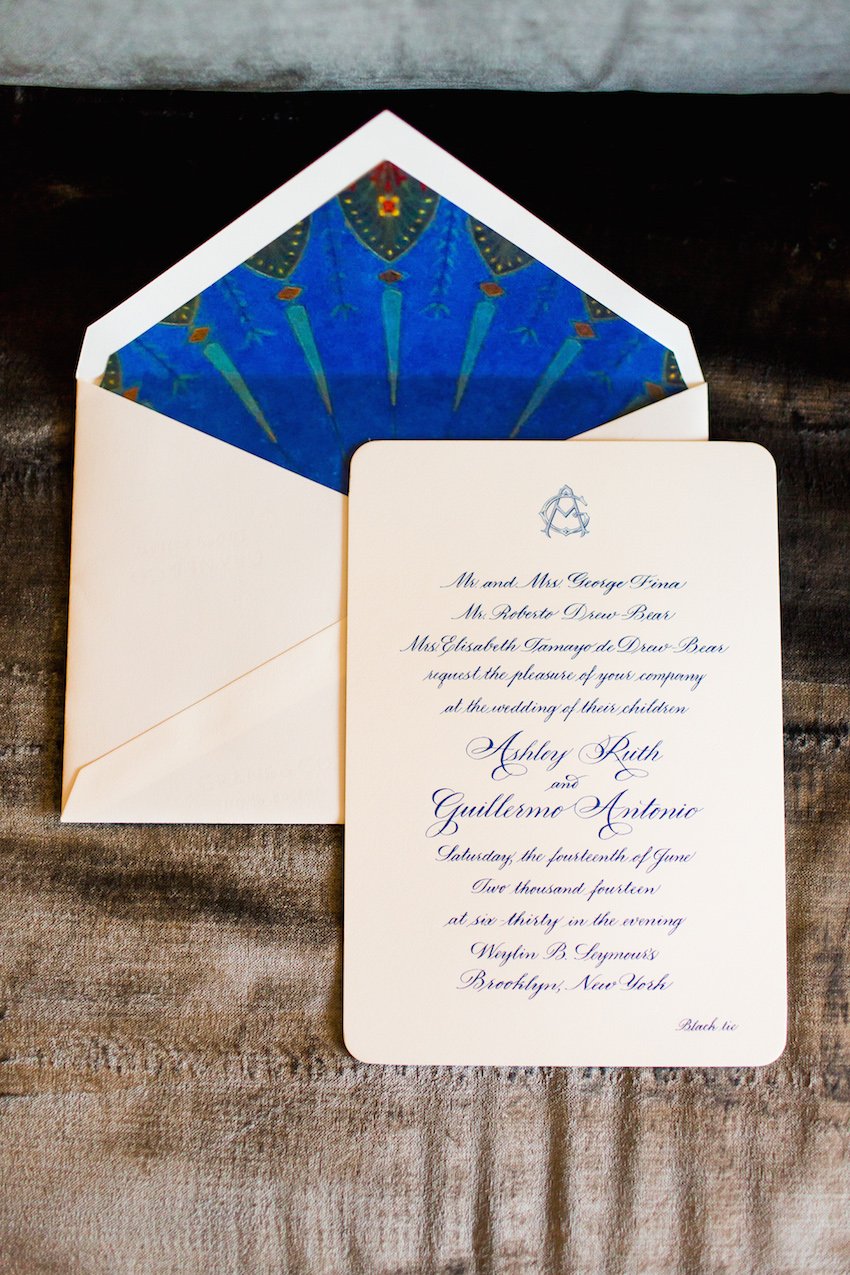 Mr. and Mrs. George Fina
Mr. Roberto Drew-Bear
Mrs. Elisabeth Tamayo de Drew-Bear
request the pleasure of your company
at the wedding of their children
Ashley Ruth
and
Guillermo Antonio
Saturday, the fourteenth of June
Two thousand fourteen
at six-thirty in the evening
Weylin B. Seymour's
Brooklyn, New York
Black tie